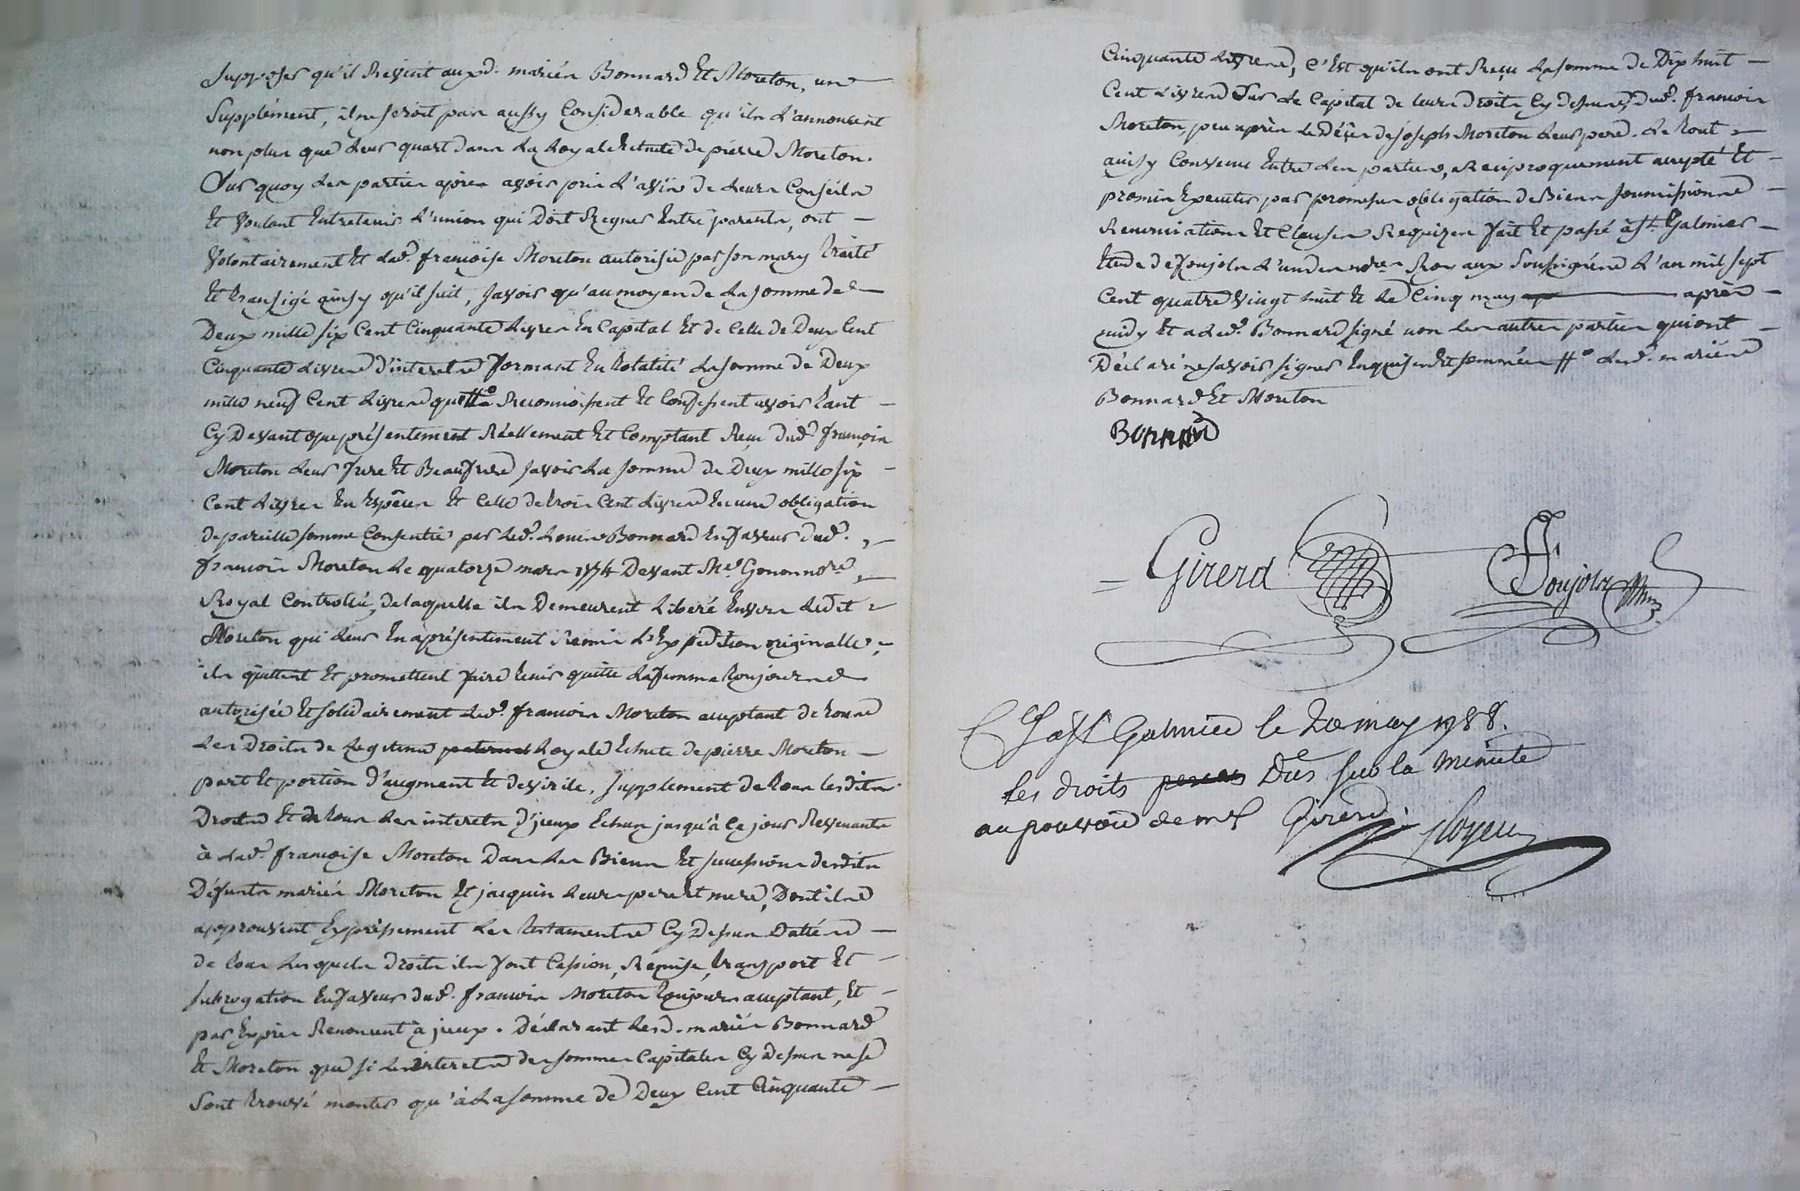 supposer qu'il Revint auxd. mariés Bonnard Et Moreton, un
Supplément, il ne seroit pas aussy Considerable qu'ils L'annoncent
non plus que Leur quart dans La Royale Echute de pierre Moreton.
Sur quoy Les parties apres avoir pris L'avis de Leurs Conseils
Et voulant Entretenir L'union qui Doit Regner Entre parents, ont
volontairement Et Lad. françoise Moreton autorisée par son mary traité
Et transigé ainsy qu'il suit, savoir qu'au moyen de La somme de
Deux mille six Cent Cinquante Livres En Capital Et de Celle de Deux Cent
Cinquante Livres d'interets formant En totalité La somme de Deux
mille neuf Cent Livres que Reconnoissent Et Confessent avoir tant
Cy Devant que présentement Réellement Et Comptant Reçu dud. françois
Moreton Leur frere Et Beaufrere savoir La somme de Deux mille six
Cent Livres En Espèces Et Celle de trois Cent Livres En une obligation
de pareille somme Consentie par Led. Louis Bonnard En faveur dud.
françois Moreton Le quatorze mars 1774 Devant Me Gonon nore
Royal Controllé, de laquelle ils Demeurent Libéré Envers Ledit
Moreton qui Leur En a présentement Remis L'Expedition originalle,
ils quittent Et promettent faire tenir quitte La femme toujours
autorisée Et solidairement Led. françois Moreton acceptant de tous
Les Droits de Legitime Royale Echute de pierre Moreton
part Et portion d'augment Et de virile, supplement de tous lesdits
Droits Et de tous Les interets d'jceux Echus jusqu'à Ce jour Revenants
à Lad. françoise Moreton Dans Les Biens Et successions desdits
Défunts mariés Moreton Et jacquin Leurs pere Et mere, Dont ils
approuvent Expressement Les testaments Cy Dessus Dattés
de tous Lesquels Droits ils font Cession, Remise, transport Et
subrogation En faveur dud. françois Moreton toujours acceptant, Et
par Exprès Renoncent à jceux. Déclarant Lesd. mariés Bonnard
Et Moreton que si Les interets des sommes Capitales Cy Dessus ne se
sont trouvé monter qu'à La somme de Deux Cent Cinquante
Cinquante Livres, C'Est qu'ils ont Reçu La somme de Dix huit
Cent Livres Sur Le Capital de leurs droits Cy dessus dud. françois
Moreton peu après Le Décès de joseph Moreton Leur pere. Le tout
ainsy Convenu Entre Les parties, Reciproquement accepté Et
promis Executer par promesses obligation de Biens soumissions
Renonciations Et Clauses Requizes fait Et passé à St. Galmier
Etude de Poujols L'un des nores Royaux Soussignés L'an mil sept
Cent quatre vingt huit Et Le Cinq may après
midy Et a Led. Bonnard signé non Les autres parties qui ont
Déclaré ne savoir signer Enquises Et sommées Lesd. mariés
Bonnard Et Moreton
Bonnard
Girerd Poujols
Cé à St Galmier le 20 may 1788.
les droits Dûs sur la Minute
au pouvoir de me Girerd.